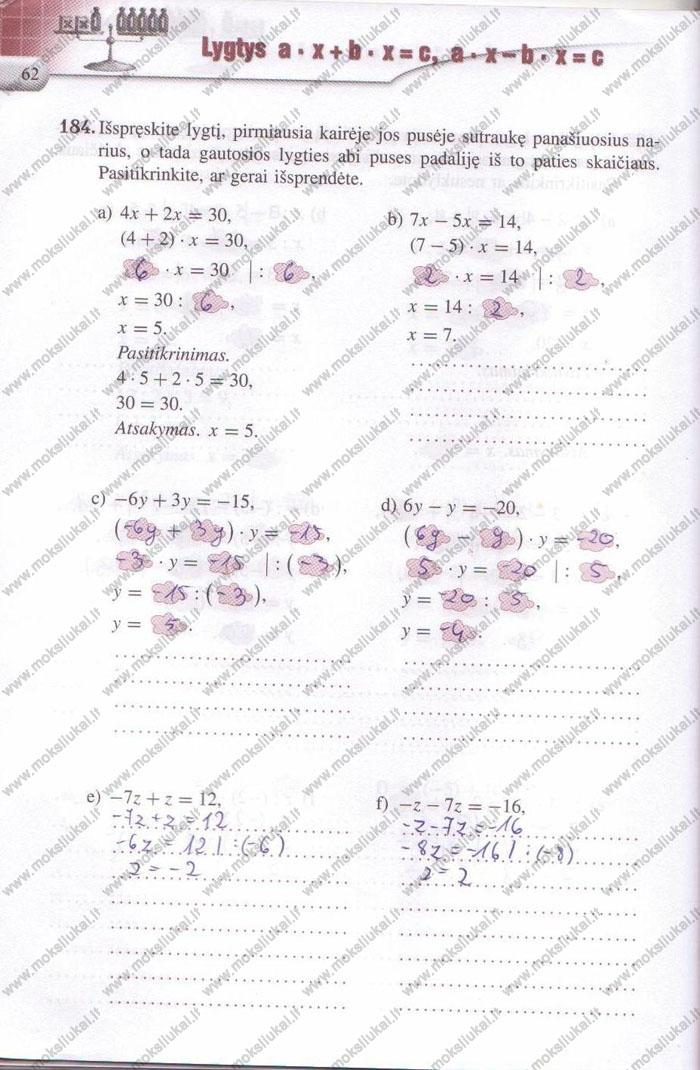 Lygtys a · x + b · x = c, a · x − b · x = c
62
184. Išspręskite lygtį, pirmiausia kairėje jos pusėje sutraukę panašiuosius na-
rius, o tada gautosios lygties abi puses padaliję iš to paties skaičiaus.
Pasitikrinkite, ar gerai išsprendėte.
a) 4x + 2x = 30,
(4 + 2) · x = 30,
6 · x = 30 | : 6,
x = 30 : 6,
x = 5.
Pasitikrinimas.
4 · 5 + 2 · 5 = 30,
30 = 30.
Atsakymas. x = 5.
b) 7x − 5x = 14,
(7 − 5) · x = 14,
2 · x = 14 | : 2,
x = 14 : 2,
x = 7.
c) −6y + 3y = −15,
(-6y + 3y) · y = -15,
-3 · y = -15 | : (-3),
y = -15 : (-3),
y = 5.
d) 6y − y = −20,
(6y − y) · y = -20,
5 · y = -20 | : 5,
y = -20 : 5,
y = -4.
e) −7z + z = 12,
-7z + z = 12
-6z = 12 | : (-6)
z = -2
f) −z − 7z = −16,
-z - 7z = -16
-8z = -16 | : (-8)
z = 2
www.moksliukai.lt